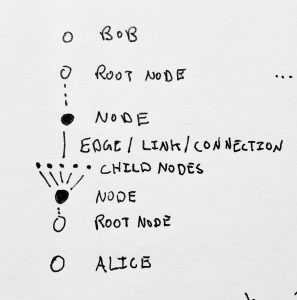 BOB
ROOT NODE
...
NODE
EDGE/LINK/CONNECTION
CHILD NODES
NODE
ROOT NODE
ALICE